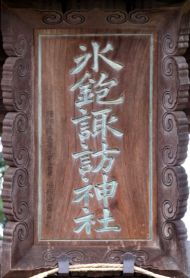 氷鉋諏訪神社